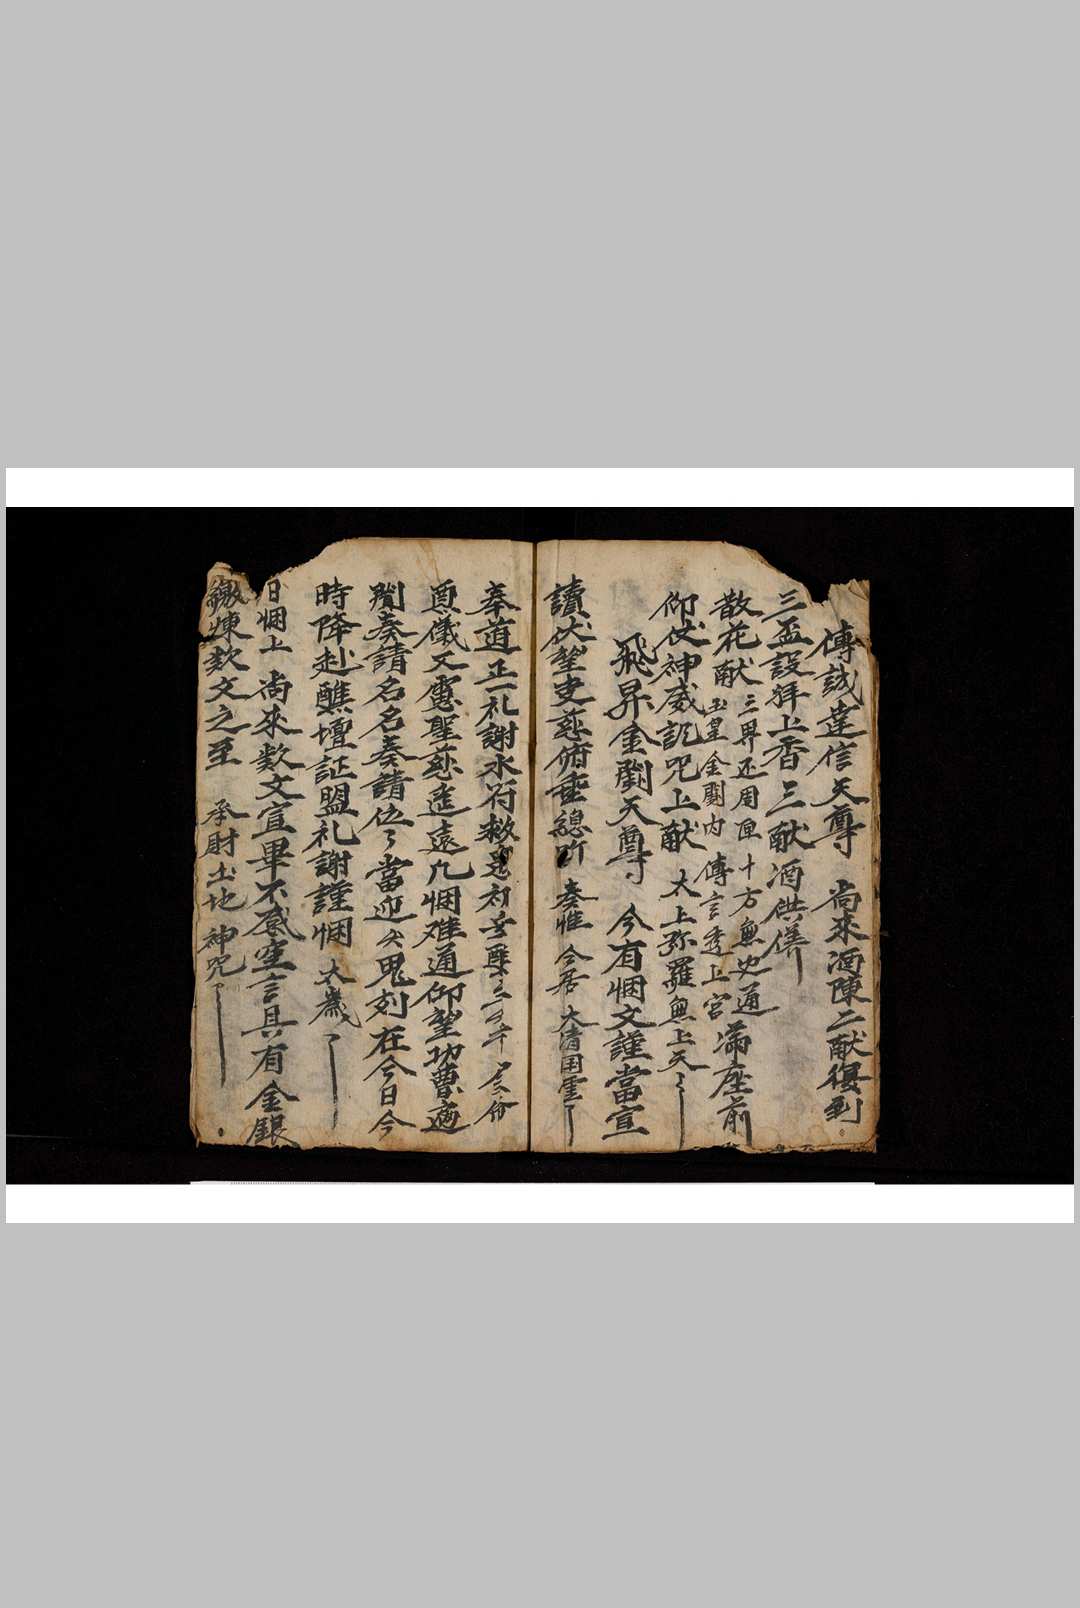 傳誠達信天尊 尚來酒陳二献復到
三盃設拜上香三献酒供養
散花献 三界还周匝 十方無央通 滿座前
玉皇金闕内 傳言透上宮
仰仗神威訊咒上献 太上弥羅無上天
飛昇金闕天尊 今有悃文謹當宣
讀伏望吏慈俯垂總听 奏惟 今居 大清国雲
奉道正一礼謝水符救
真儀文 聖慈 遠凡悃难通仰望功曹
奏請名名奏請伍 當迎 鬼刻在今日今
時降赴醮壇証盟礼謝謹悃 太歲
日悃上 尚來欵文宣畢不感空言具有金銀
繳 欵文之至 承財土地神咒